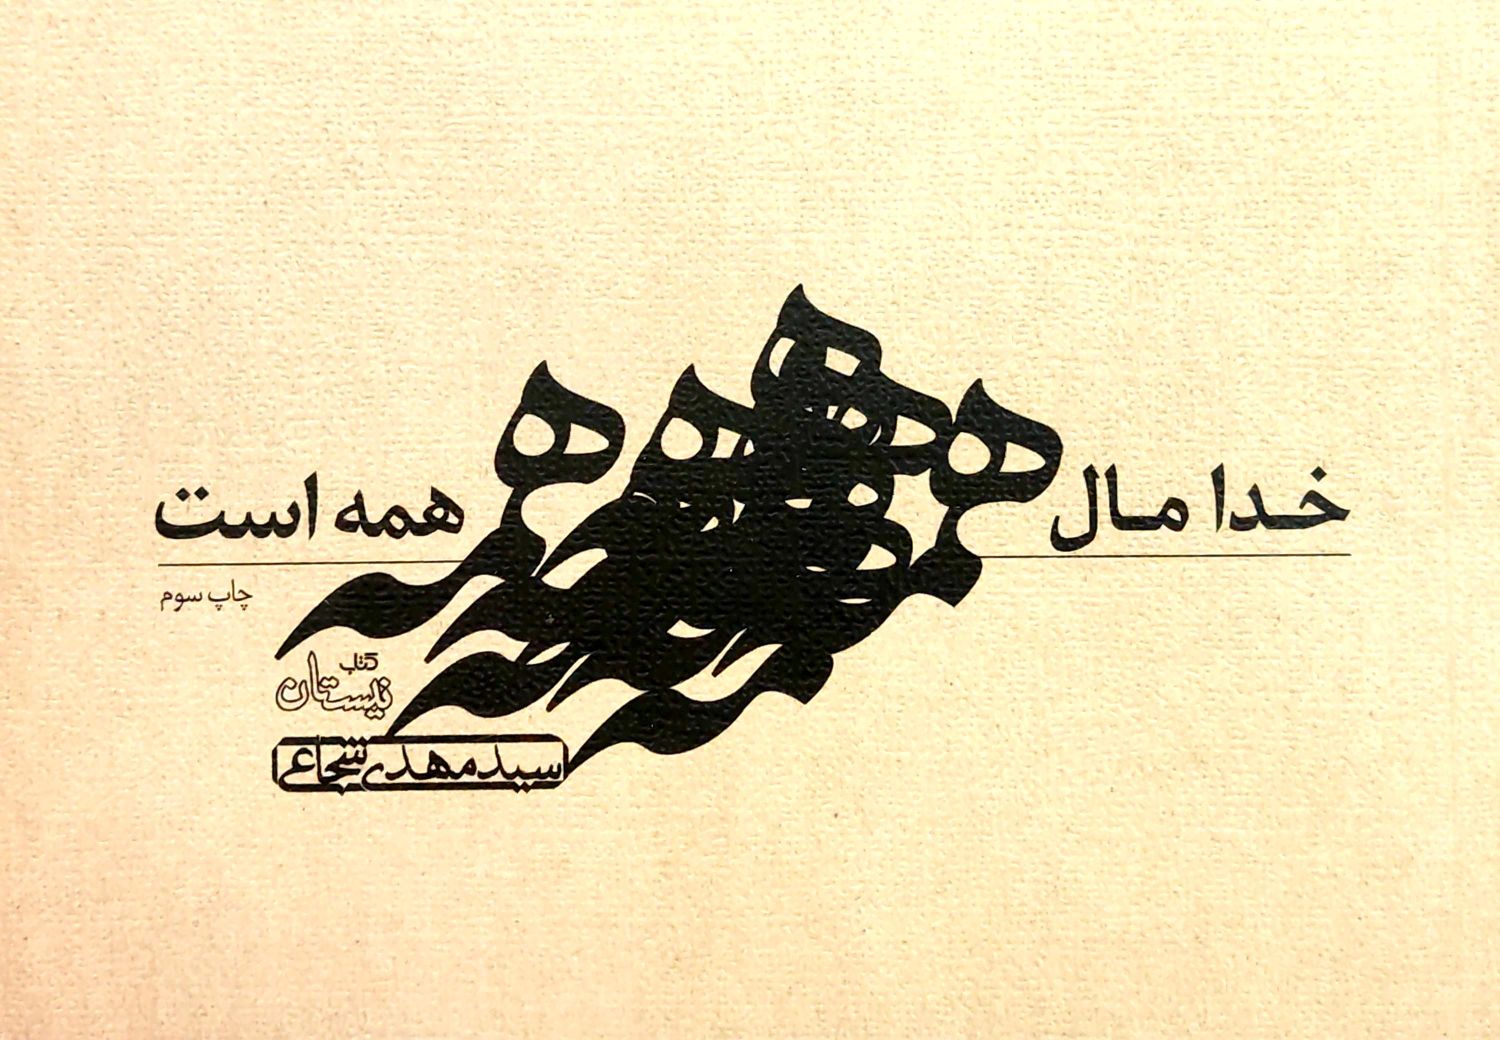 خدا مال همه است
چاپ سوم
کتاب
نیستان
سید مهدی شجاعی